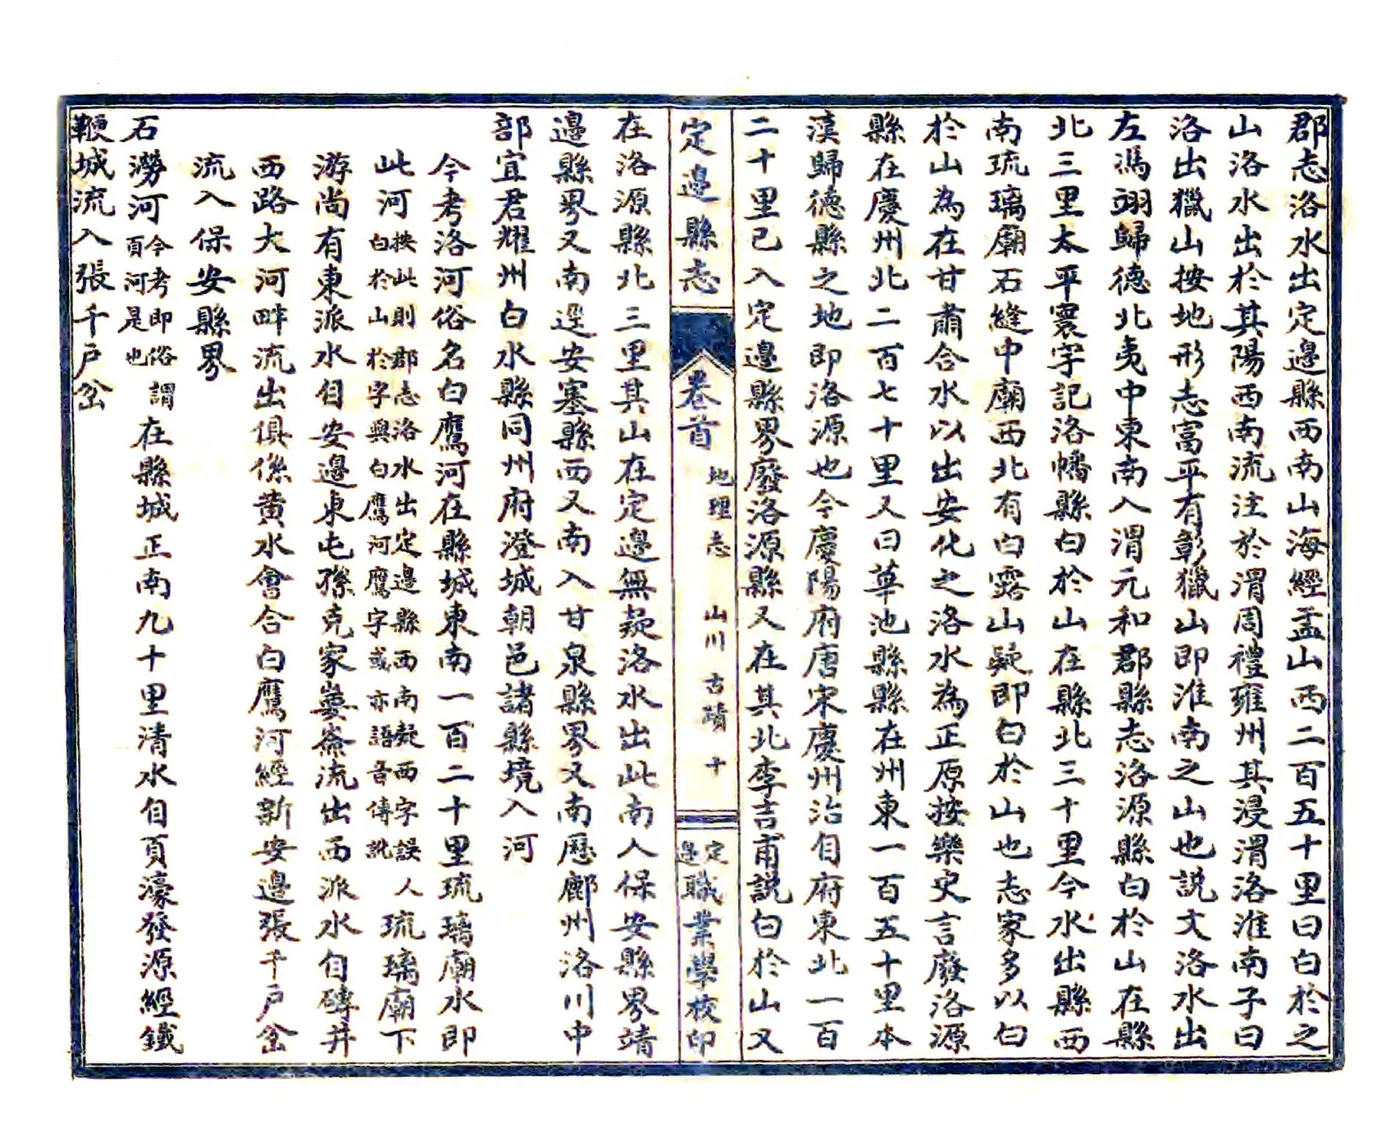 郡志洛水出定邊縣西南山海經盂山西二百五十里曰白於之
山洛水出於其陽西南流注於渭周禮雍州其浸渭洛淮南子曰
洛出獵山按地形志富平有彰獵山即淮南之山也説文洛水出
左馮翊歸德北夷中東南入渭元和郡縣志洛源縣白於山在縣
北三里太平寰宇記洛幡縣白於山在縣北三十里今水出縣西
南琉璃廟石縫中廟西北有白露山疑即白於山也志家多以白
於山為在甘肅合水以出安化之洛水為正原按樂史言廢洛源
縣在慶州北二百七十里又曰華池縣縣在州東一百五十里本
漢歸德縣之地即洛源也今慶陽府唐宋慶州治自府東北一百
二十里已入定邊縣界廢洛源縣又在其北李吉甫説白於山又
定邊縣志
卷首
地理志 山川 古蹟 十
定邊職業學校印
在洛源縣北三里其山在定邊無疑洛水出此南入保安縣界靖
邊縣界又南逕安塞縣西又南入甘泉縣界又南歷鄜州洛川中
部宜君耀州白水縣同州府澄城朝邑諸縣境入河
今考洛河俗名白鷹河在縣城東南一百二十里琉璃廟水即
此河按此則郡志洛水出定邊縣西南疑西字誤人白於山於字與白鷹河鷹字或亦語音傳訛琉璃廟下
游尚有東派水自安邊東屯孫克家崾崙流出西派水自磚井
西路大河畔流出俱係黃水會合白鷹河經新安邊張千户岔
流入保安縣界
石澇河今考即俗謂頁河是也在縣城正南九十里清水自頁濠發源經鐵
鞭城流入張千户岔